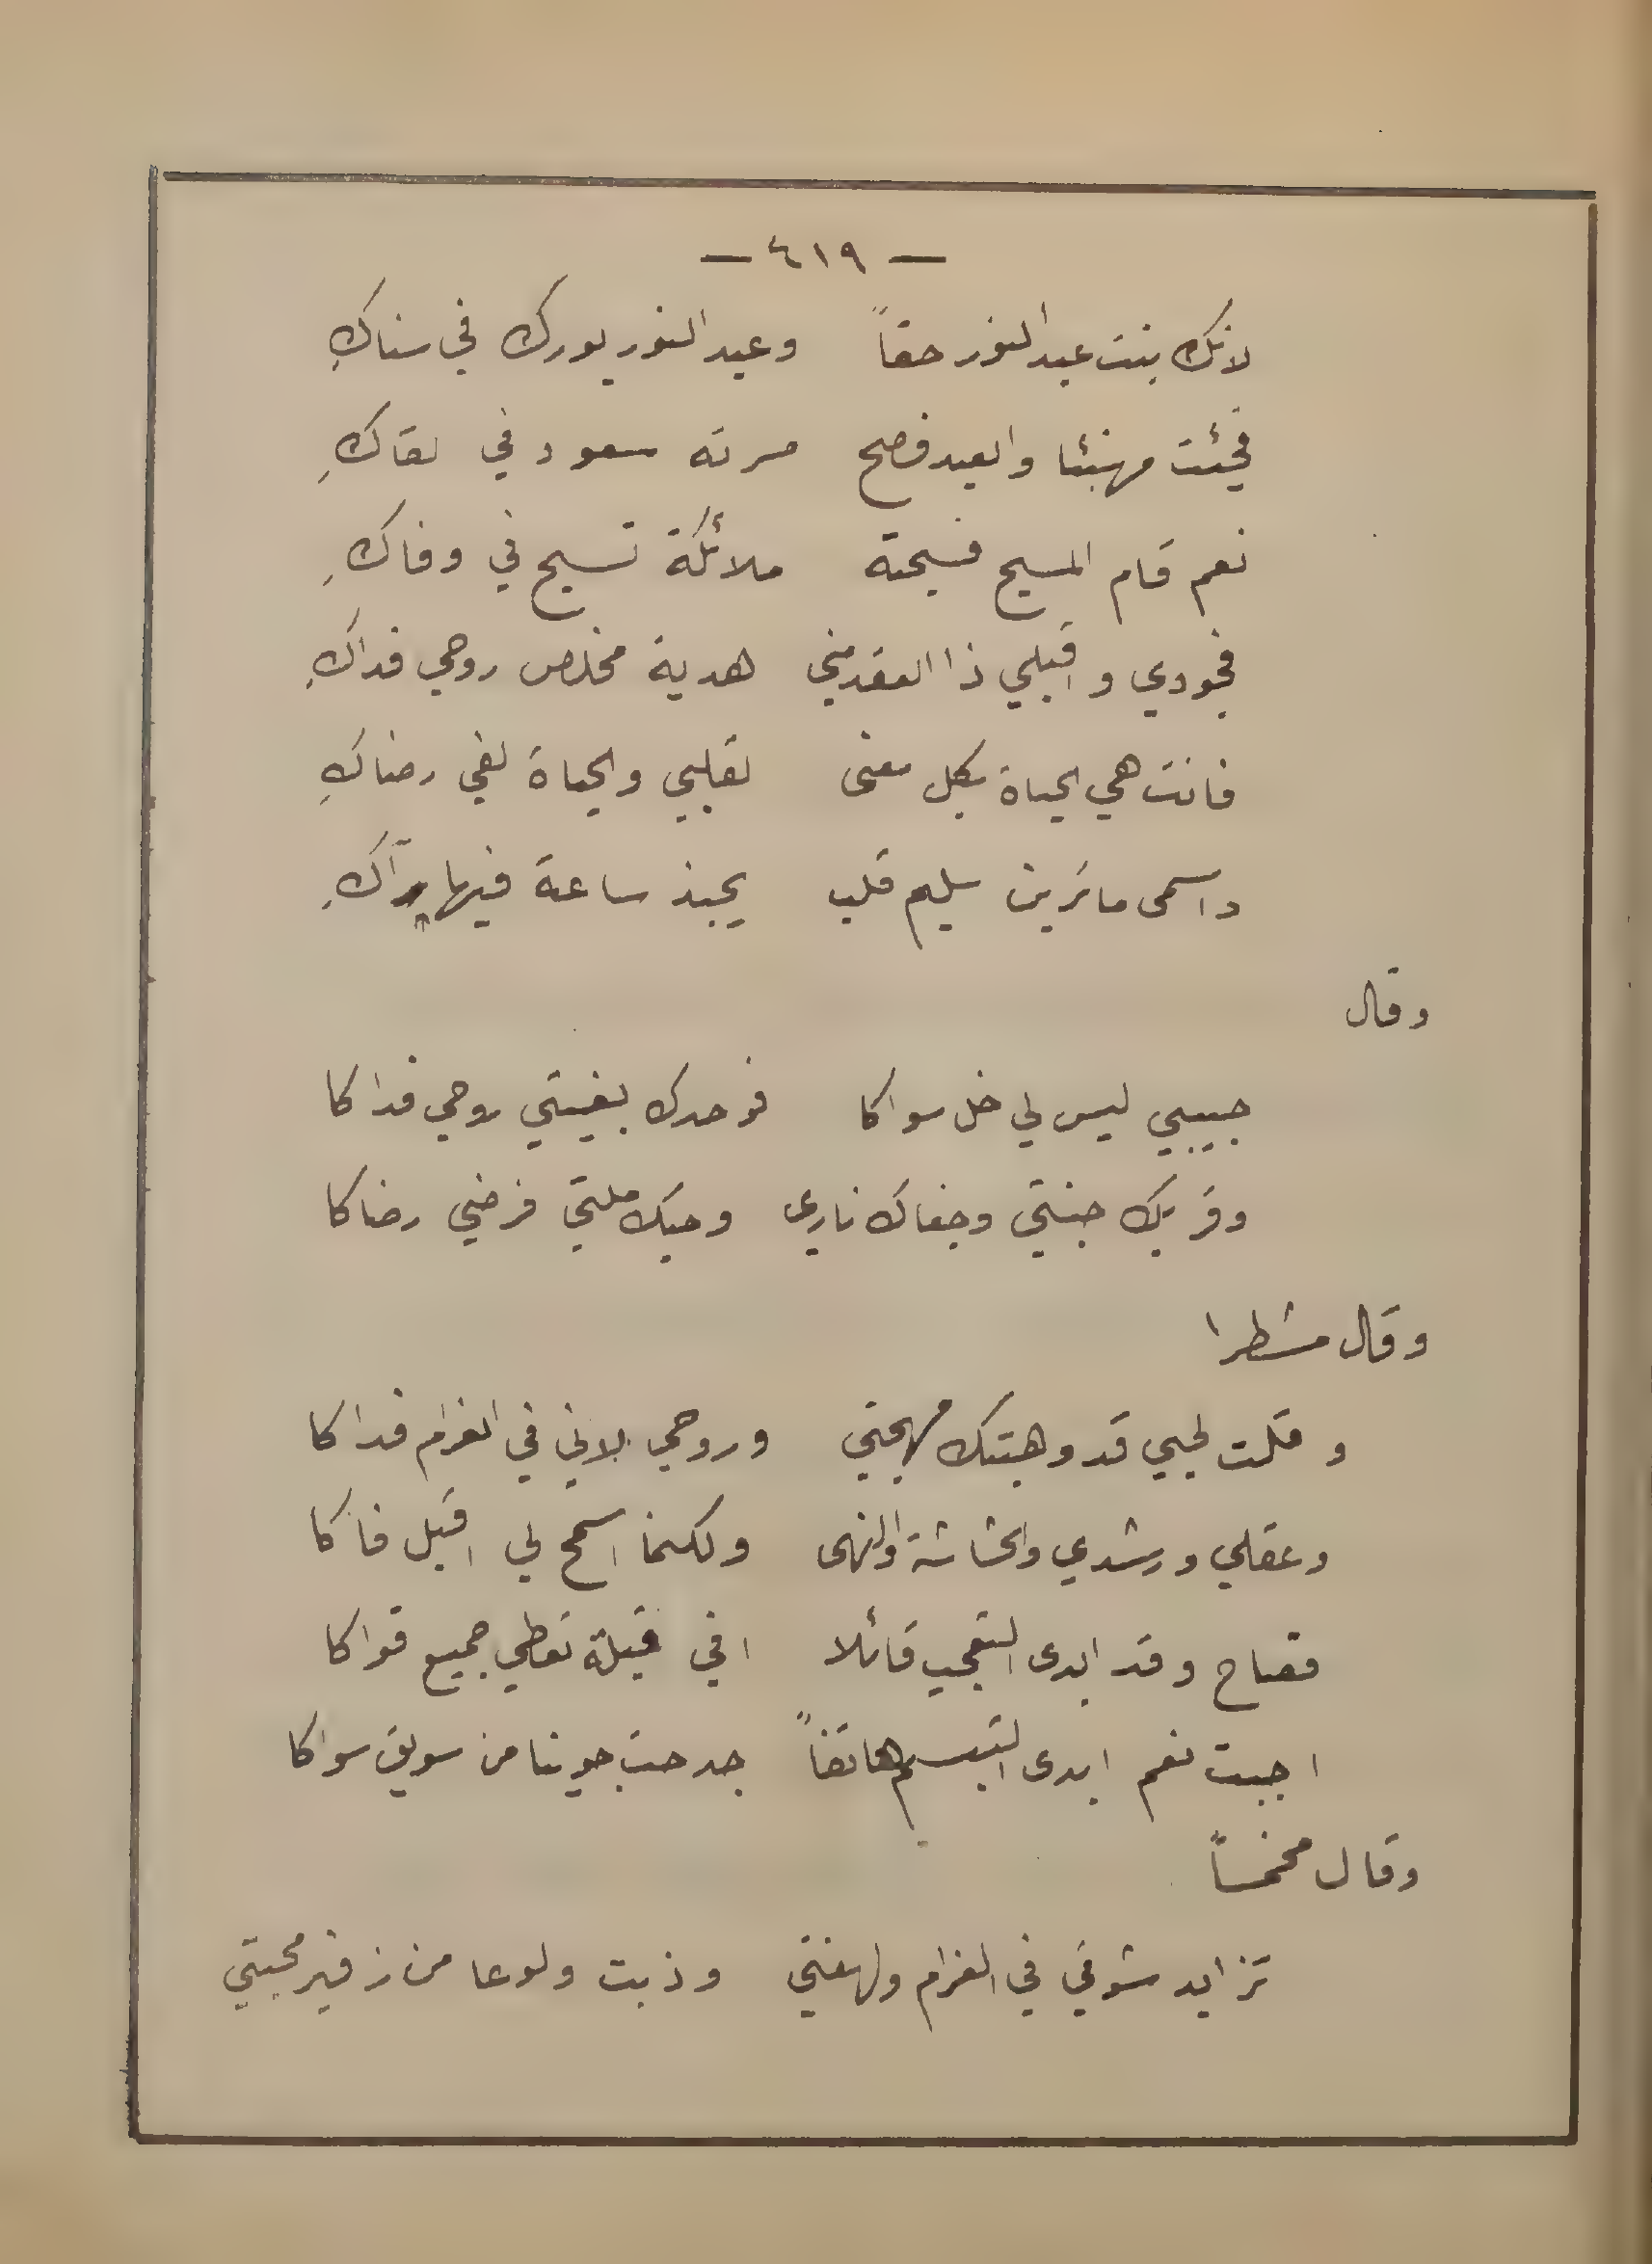 — ٤١٩ —
لانك بنت عيد النور حقاً وعيد النور بورك في سناكِ
فجئت مهنئا والعيد فصح مسرته سعود في لقاكِ
نعم قام المسيح فسبحته ملائكة تسبح في وفاكِ
فجودي واقبلي ذا العقد مني هدية مخلص روحي فداكِ
فانت هي الحياة بكل معنى لقلبي والحياة لفي رضاكِ
واسمى ما ترين سليم قلب يحبذ ساعة فيها يراكِ
وقال
حبيبي ليس لي خل سواكا فوحدك بغيتي روحي فداكا
وقربك جنتي وجفاك ناري وحبك ملتي فرضي رضاكا
وقال مشطرا
وقلت لحبي قد وهبتك مهجتي وروحي لاني في الغرام فداكا
وعقلي ورشدي والحشاشة والنهى ولكنما اسمح لي اقبل فاكا
فصاح وقد ابدى التعجب قائلا افي قبلة تعطي جميع قواكا
اجبت نعم ابدى التبسم هاتفاً جدحت جوينا من سويق سواكا
وقال مخمساً
تزايد شوقي في الغرام ولهفتي وذبت ولوعا من زفير محبتي